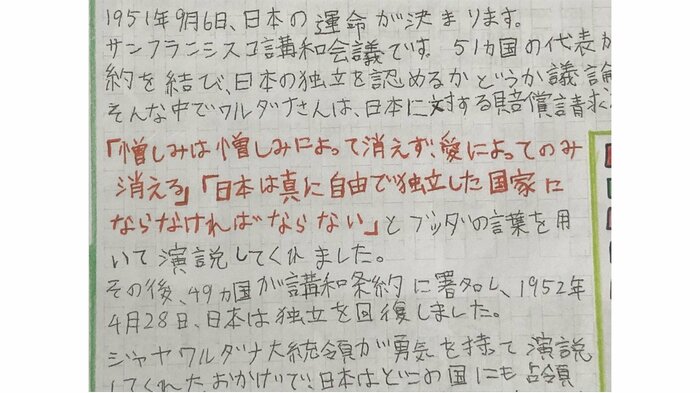 1951年9月6日、日本の運命が決まります。
サンフランシスコ講和会議です。51カ国の代表が
約を結び、日本の独立を認めるかどうか議論
そんな中でワルダナさんは、日本に対する賠償請求
「憎しみは憎しみによって消えず、愛によってのみ
消える」「日本は真に自由で独立した国家に
ならなければならない」とブッダの言葉を用
いて演説してくれました。
その後、49カ国が講和条約に署名し、1952年
4月28日、日本は独立を回復しました。
ジャヤワルダナ大統領が勇気を持って演説
してくれたおかげで、日本はどこの国にも占領